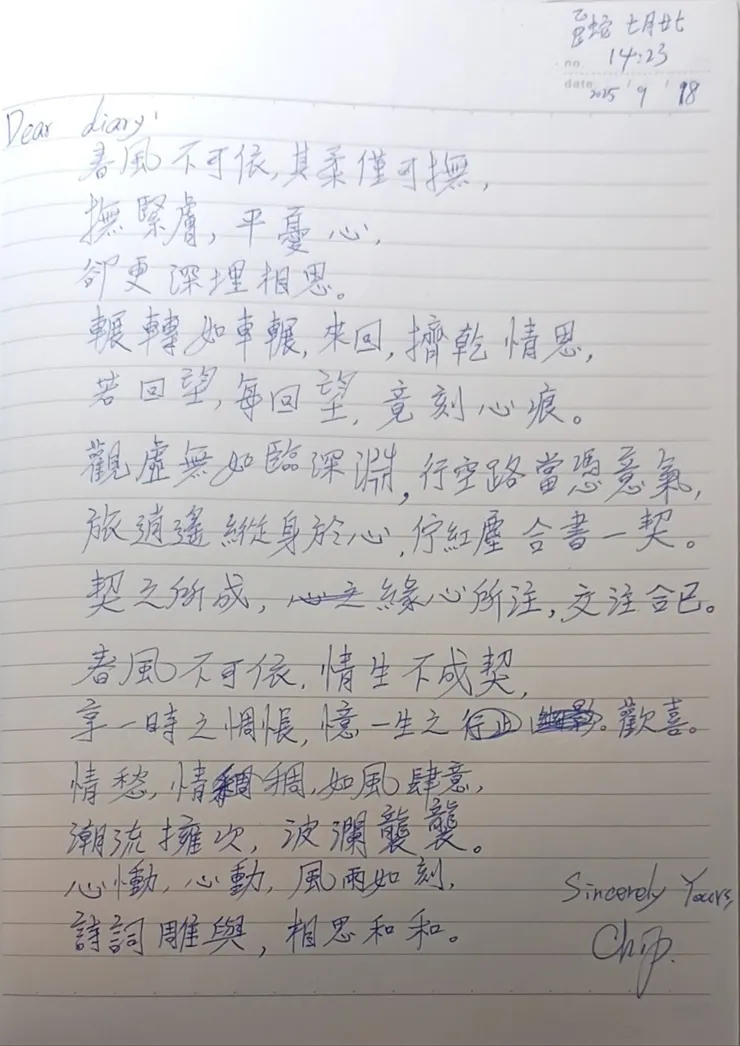 乙巳蛇 七月廿七
no. 14:23
date 2025 / 9 / 18
Dear diary,
春風不可依,其柔僅可撫,
撫緊膚,平憂心,
卻更深埋相思。
輾轉如車輾,來回,擠乾情思,
若回望,每回望,竟刻心痕。
觀虛無如臨深淵,行空路當憑意氣,
旅逍遙縱身於心,佇紅塵合書一契。
契之所成,緣心所注,交注合已。
春風不可依,情生不成契,
享一時之惆悵,憶一生之行止。歡喜。
情愁,情稠,如風肆意,
潮流擁次,波瀾襲襲。
心慟,心動,風雨如刻,
詩詞雕與,相思和和。
Sincerely Yours,
Chip.